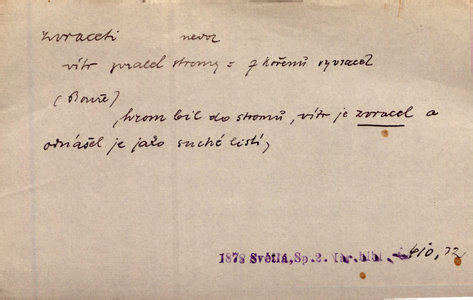 zvraceti nevoz
vítr zvracel stromy = z kořenů vyvracel
(Bouře)
hrom bil do stromů, vítr je zvracel a
odnášel je jako suché listí,
1878 Světlá, Sp. 2. 410, 72